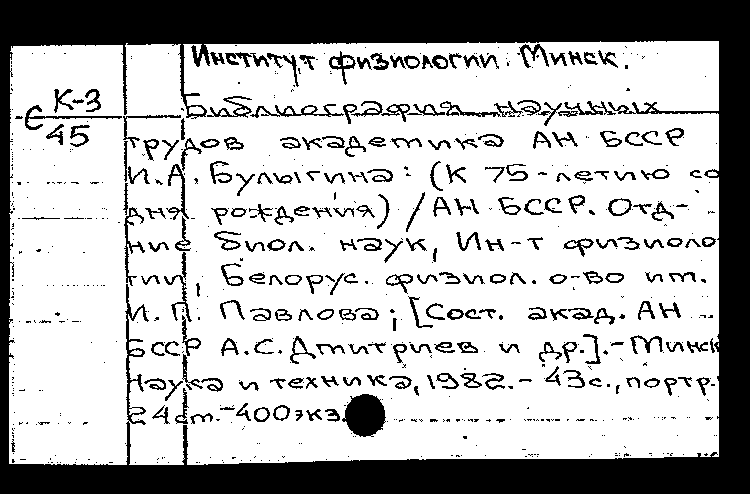 Институт физиологии. Минск.
С К-3
45
Библиография научных
трудов академика АН БССР
И.А. Булыгина: (К 75-летию со
дня рождения) / АН БССР. Отд-
ние биол. наук, Ин-т физиоло
гии, Белорус. физиол. о-во им.
И. П. Павлова; [Сост. акад. АН
БССР А.С. Дмитриев и др.]. - Минск
Наука и техника, 1982. - 43с., портр.
24см. - 400экз.